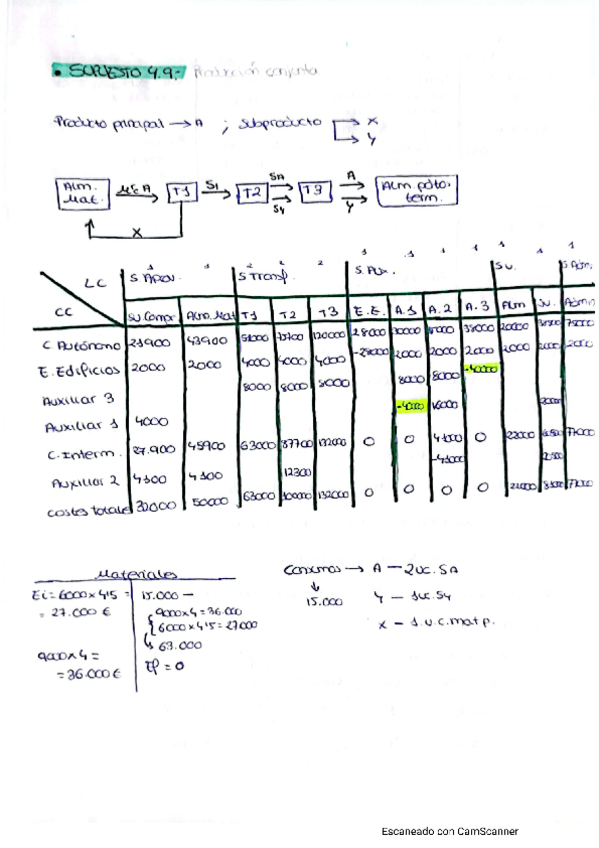 • SUPUESTO 4.9.- Producción conjunta
Producto principal → A ; Subproducto → X
→ Y
Alm. Mat. M&A → T1 S1 → T2 SA → S4 → T3 A → Y → Alm pdto. term.
X
LC S. Aprov. S Transf. S. Aux. S.V. S Adm.
CC SV Compr Alm. Mat T1 T2 T3 E.E. A.1 A.2 A.3 Alm SV. Admin
C Autónomo 23900 43900 120000 28000 38000 20000 75000
E. Edificios 2000 2000 4000 4000 4000 -28000 2000 2000 2000 2000 2000 2000
Auxiliar 3 8000 8000 8000 8000 8000 -40000
Auxiliar 1 4000 16000
C. Interm. 27.900 45900 63000 87700 132000 0 0 41000 0 22000 77000
Auxiliar 2 4100 4100 12300 -41000
Costes totales 32000 50000 63000 100000 132000 0 0 0 0 77000
Materiales
Ei = 6000 x 4'5 = 15.000 —
= 27.000 €
9000 x 4 = 36.000
6000 x 4'5 = 27000
63.000
9000 x 4 =
= 36.000 €
Ef = 0
Consumos → A — 2uc. SA
15.000
Y — 1uc. S4
X — 1.u.c. mat p.
Escaneado con CamScanner